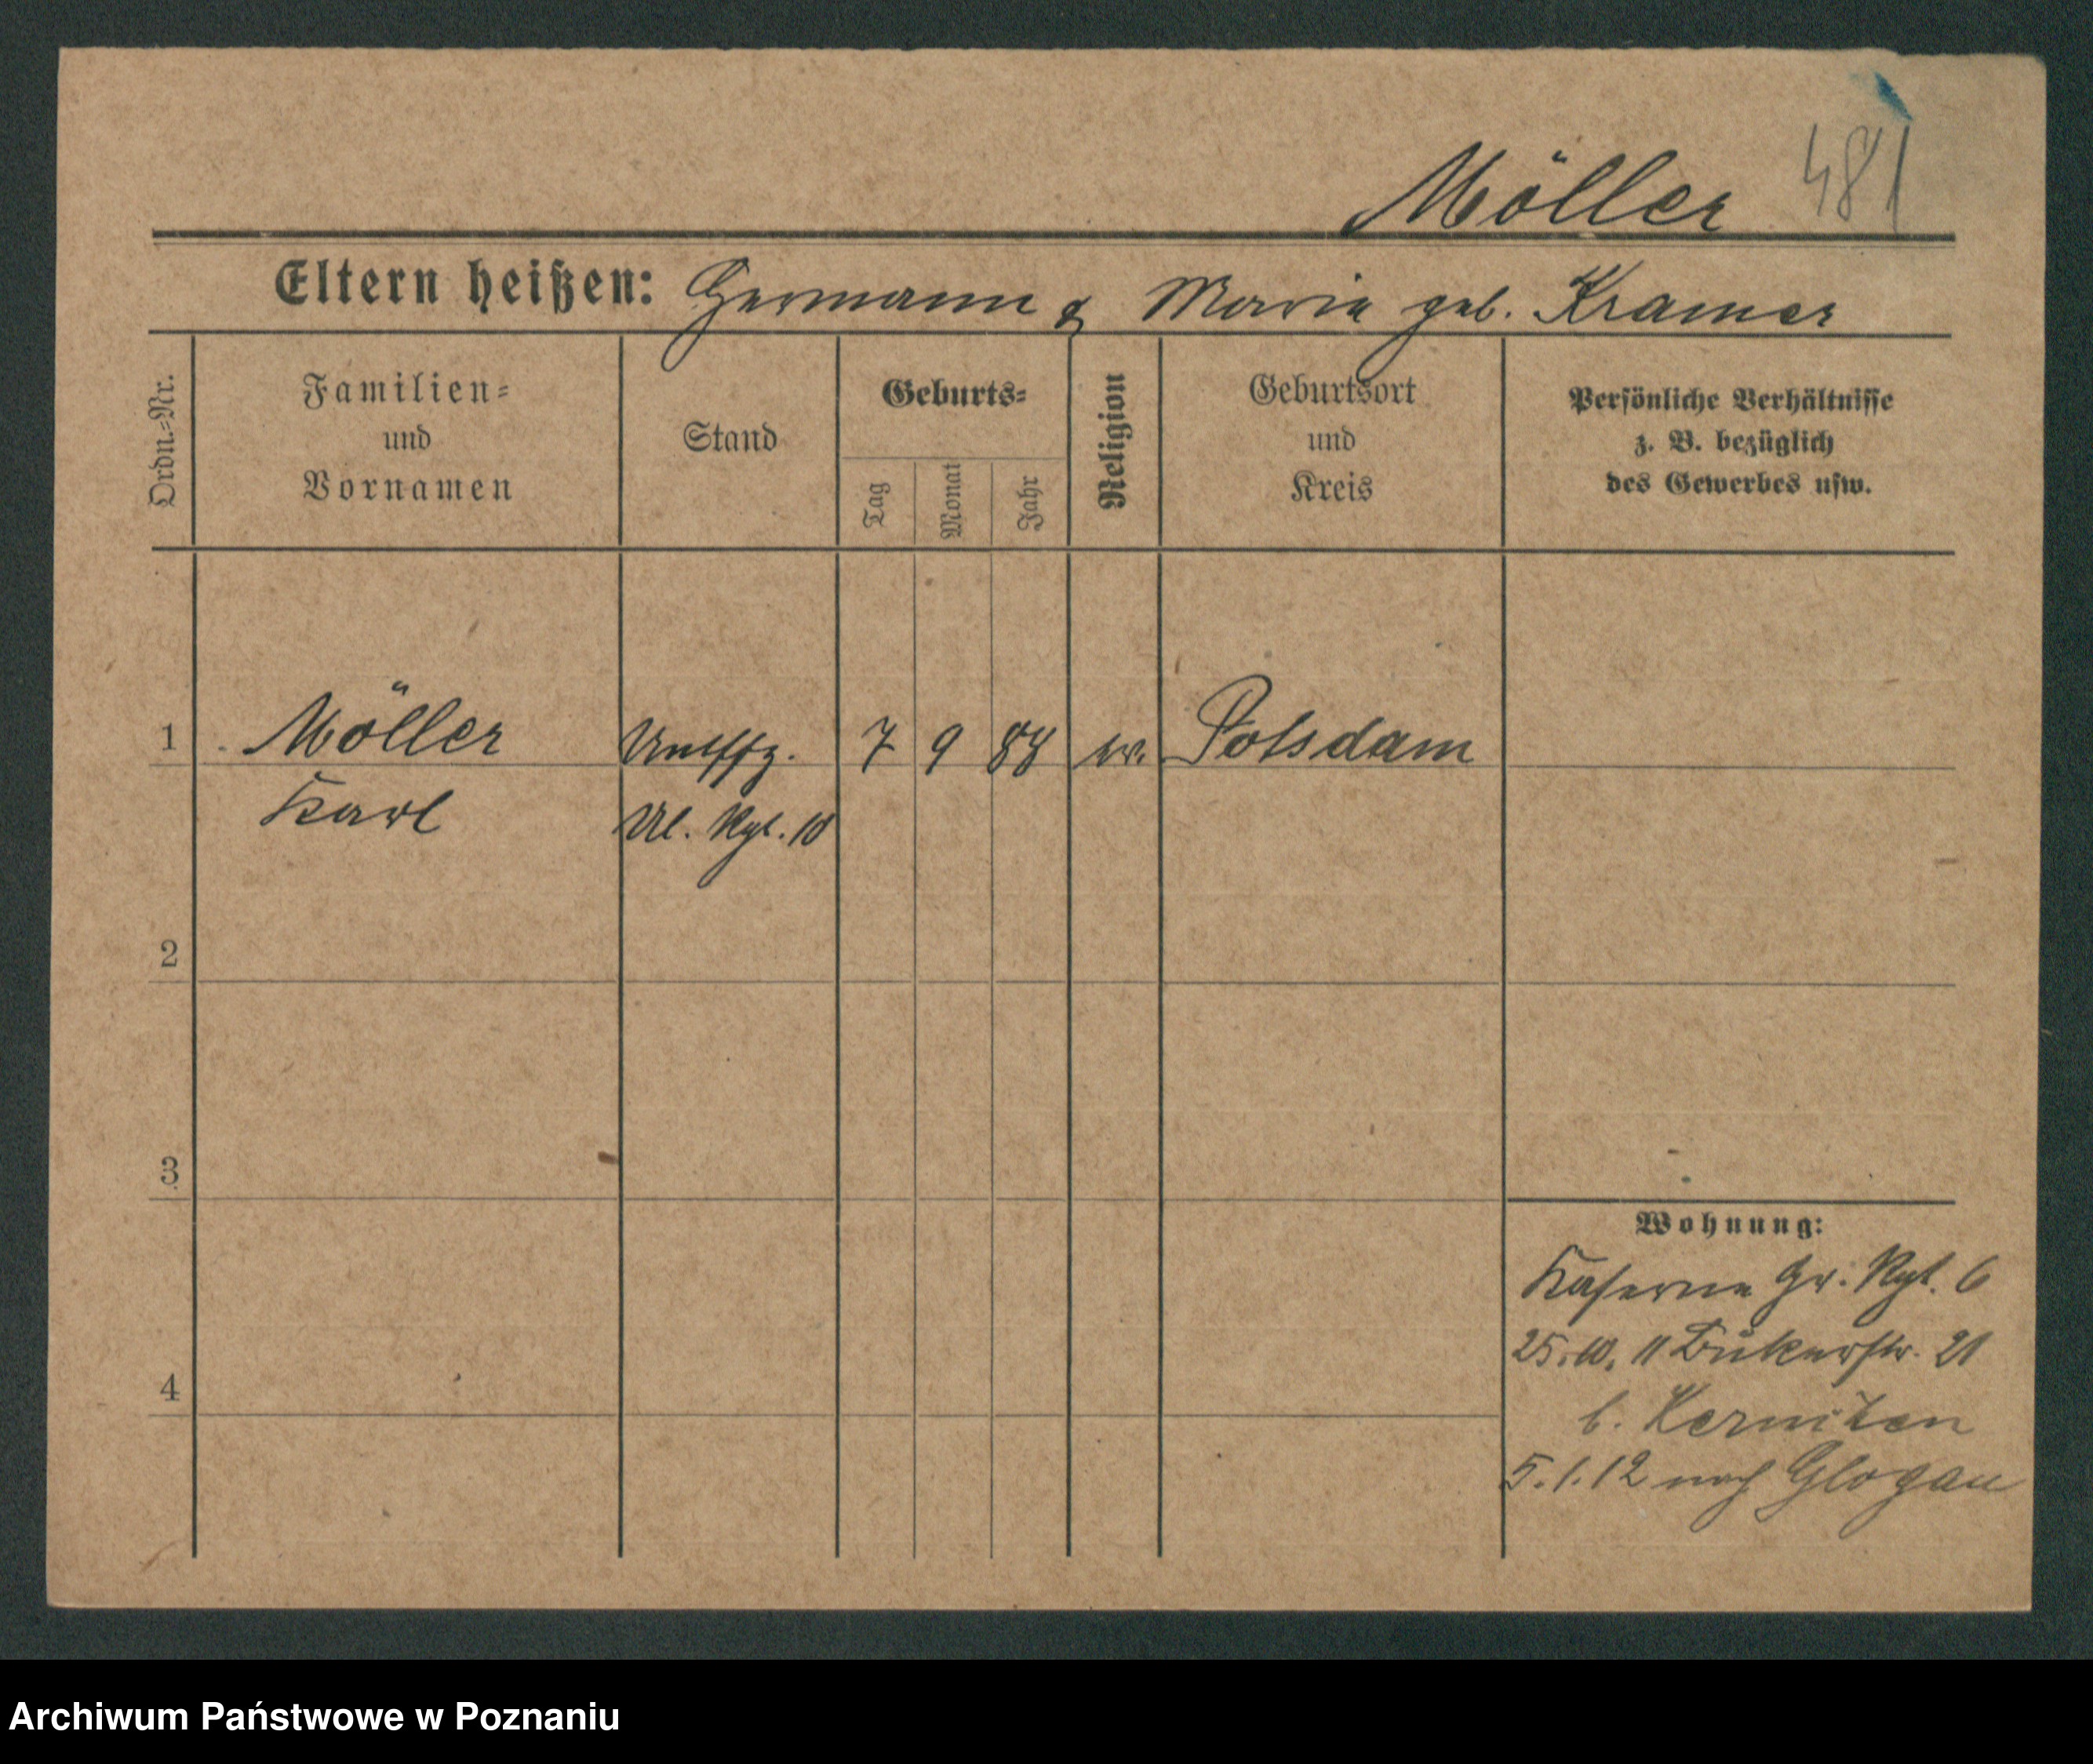 Möller 481
Eltern heißen: Hermann & Maria geb. Kramer
Ordn.-Nr.
Familien-
und
Vornamen
Stand
Geburts-
Tag
Monat
Jahr
Religion
Geburtsort
und
Kreis
Persönliche Verhältnisse
z. B. bezüglich
des Gewerbes usw.
1 Möller Untffz. 7 9 88 ev. Potsdam
Karl Ul. Rgt. 10
2
3
4
Wohnung:
Kaserne Gr. Rgt. 6
25.10.11 Bükerstr. 21
b.
5.1.12 nach Glogau
Archiwum Państwowe w Poznaniu